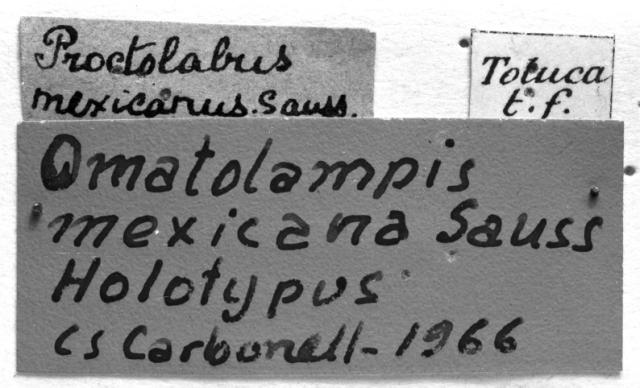 Proctolabus
mexicanus. Sauss.
Toluca
t. f.
Omatolampis
mexicana Sauss
Holotypus
CS Carbonell - 1966